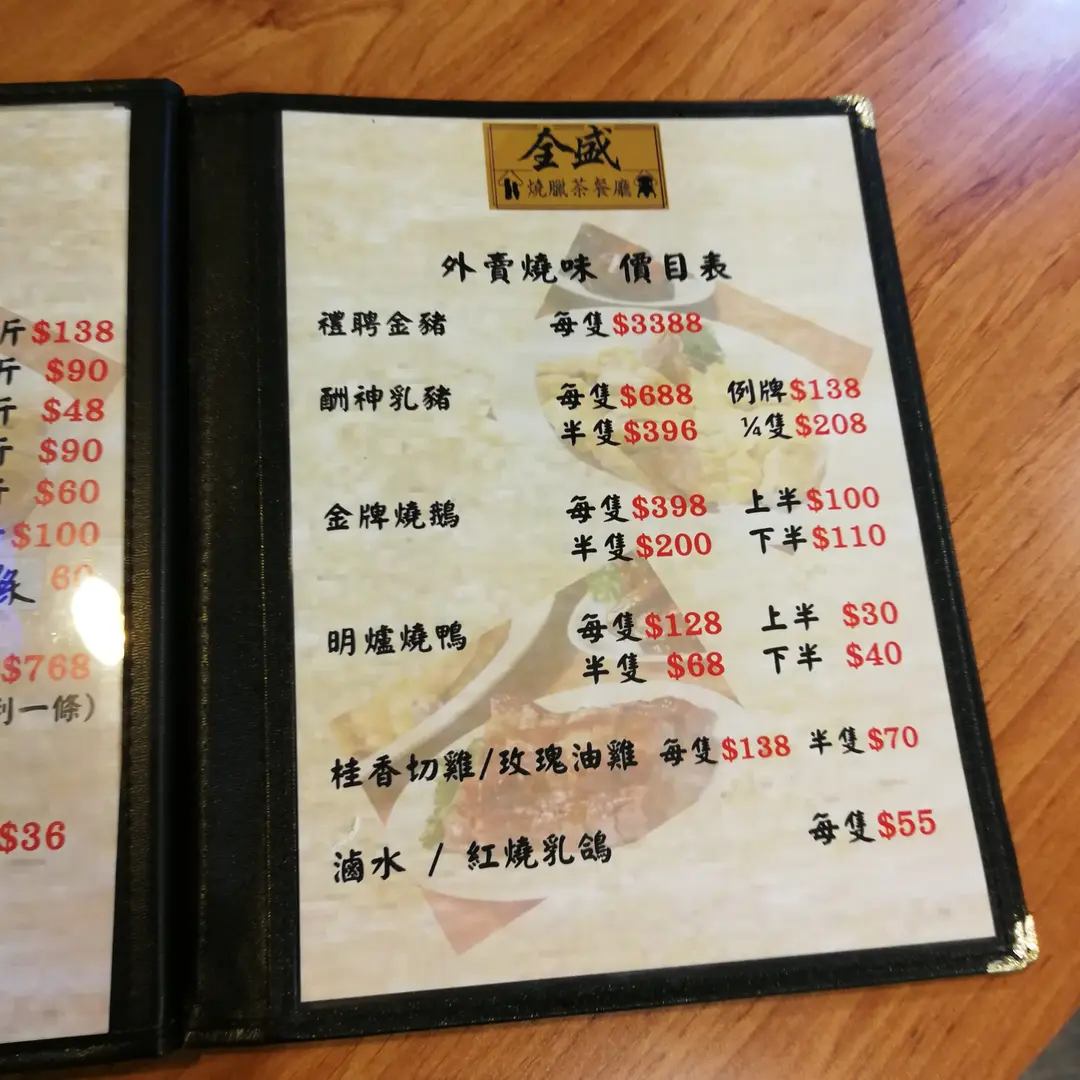 斤 $138
斤 $90
斤 $48
$90
$60
$100
60
$768
一條)
$36
全盛
燒臘茶餐廳
外賣燒味 價目表
禮聘金豬 每隻$3388
酬神乳豬 每隻$688 例牌$138
半隻$396 ¼隻$208
金牌燒鵝 每隻$398 上半$100
半隻$200 下半$110
明爐燒鴨 每隻$128 上半 $30
半隻 $68 下半 $40
桂香切雞/玫瑰油雞 每隻$138 半隻$70
滷水 / 紅燒乳鴿 每隻$55